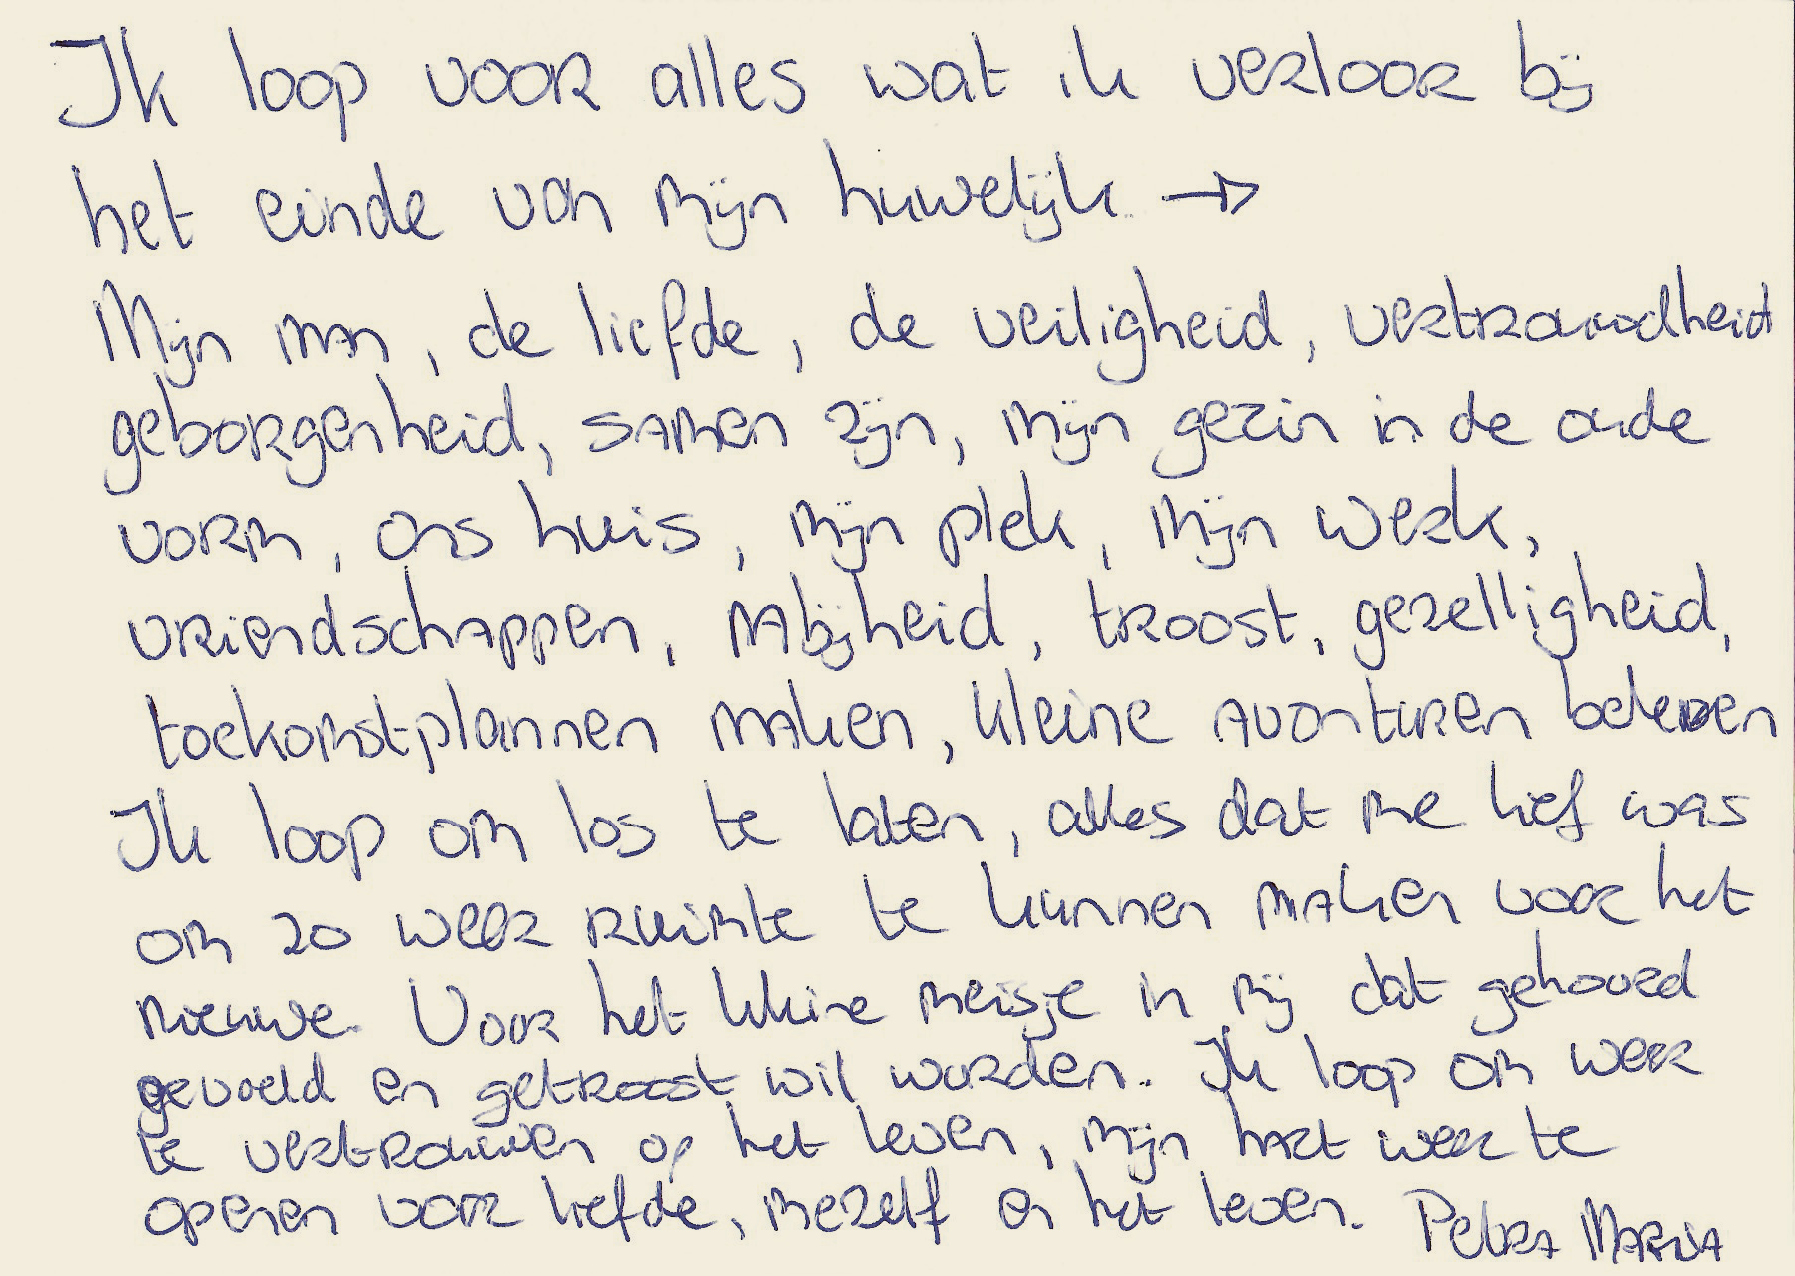 Ik loop voor alles wat ik verloor bij
het einde van mijn huwelijk →
Mijn man, de liefde, de veiligheid, vertrouwdheid
geborgenheid, samen zijn, mijn gezin in de oude
vorm, ons huis, mijn plek, mijn werk,
vriendschappen, nabijheid, troost, gezelligheid,
toekomstplannen maken, kleine avonturen beleven
Ik loop om los te laten, alles dat me lief was
om zo weer ruimte te kunnen maken voor het
nieuwe. Voor het kleine meisje in mij dat gehoord
gevoeld en getroost wil worden. Ik loop om weer
te vertrouwen op het leven, mijn hart weer te
openen voor liefde, mezelf en het leven. Petra Maria